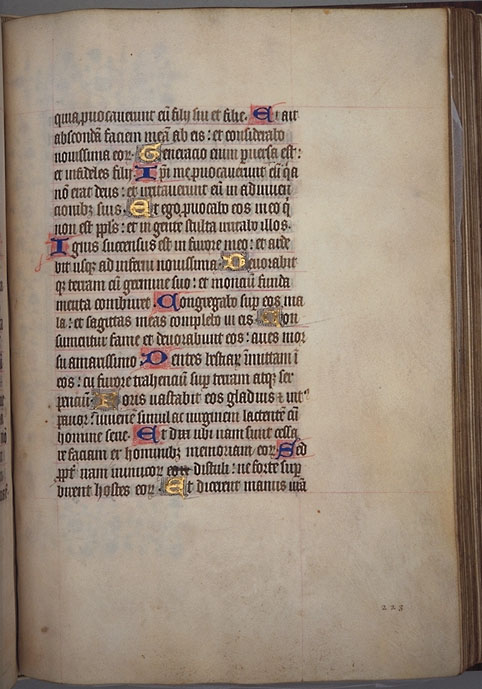 quia ꝓuocauerunt eū filij sui et filie. Et ait
abscondā faciem meā ab eis : et considerabo
nouissima eoꝝ. Generacio enim ꝑuersa est :
et infideles filij. Ipī me ꝓuocauerunt eū ī qͣ
nō erat deus : et irritauerunt eū in adinuen
cionibꝫ suis. Et ego ꝓuocabo eos in eo q̄
non est pp̄ls : et in gente stulta irritabo illos.
Ignis succensus est in furore meo : et arde
bit usqꝫ ad inferni nouissima. Deuorabit
qꝫ terram cū germine suo : et monciū funda
menta comburet. Congregabo sup eos ma
la : et sagittas meas complebo in eis. Con
sumentur fame et deuorabunt eos : aues mor
su amarissimo. Dentes bestiaꝝ inmittam ī
eos : cū furore trahenciū sup terram atqꝫ ser
penciū. Foris uastabit eos gladius ⁊ intꝰ
pauor : iuuenē simul ac uirginem lactentē cū
homine sene. Et dixi ubi nam sunt cessa
re faciam ex hominibꝫ memoriam eoꝝ. Sed
ꝓpt̄ iram inimicoꝝ distuli : ne forte sup
birent hostes eoꝝ. Et dicerent manus nr̄a
223